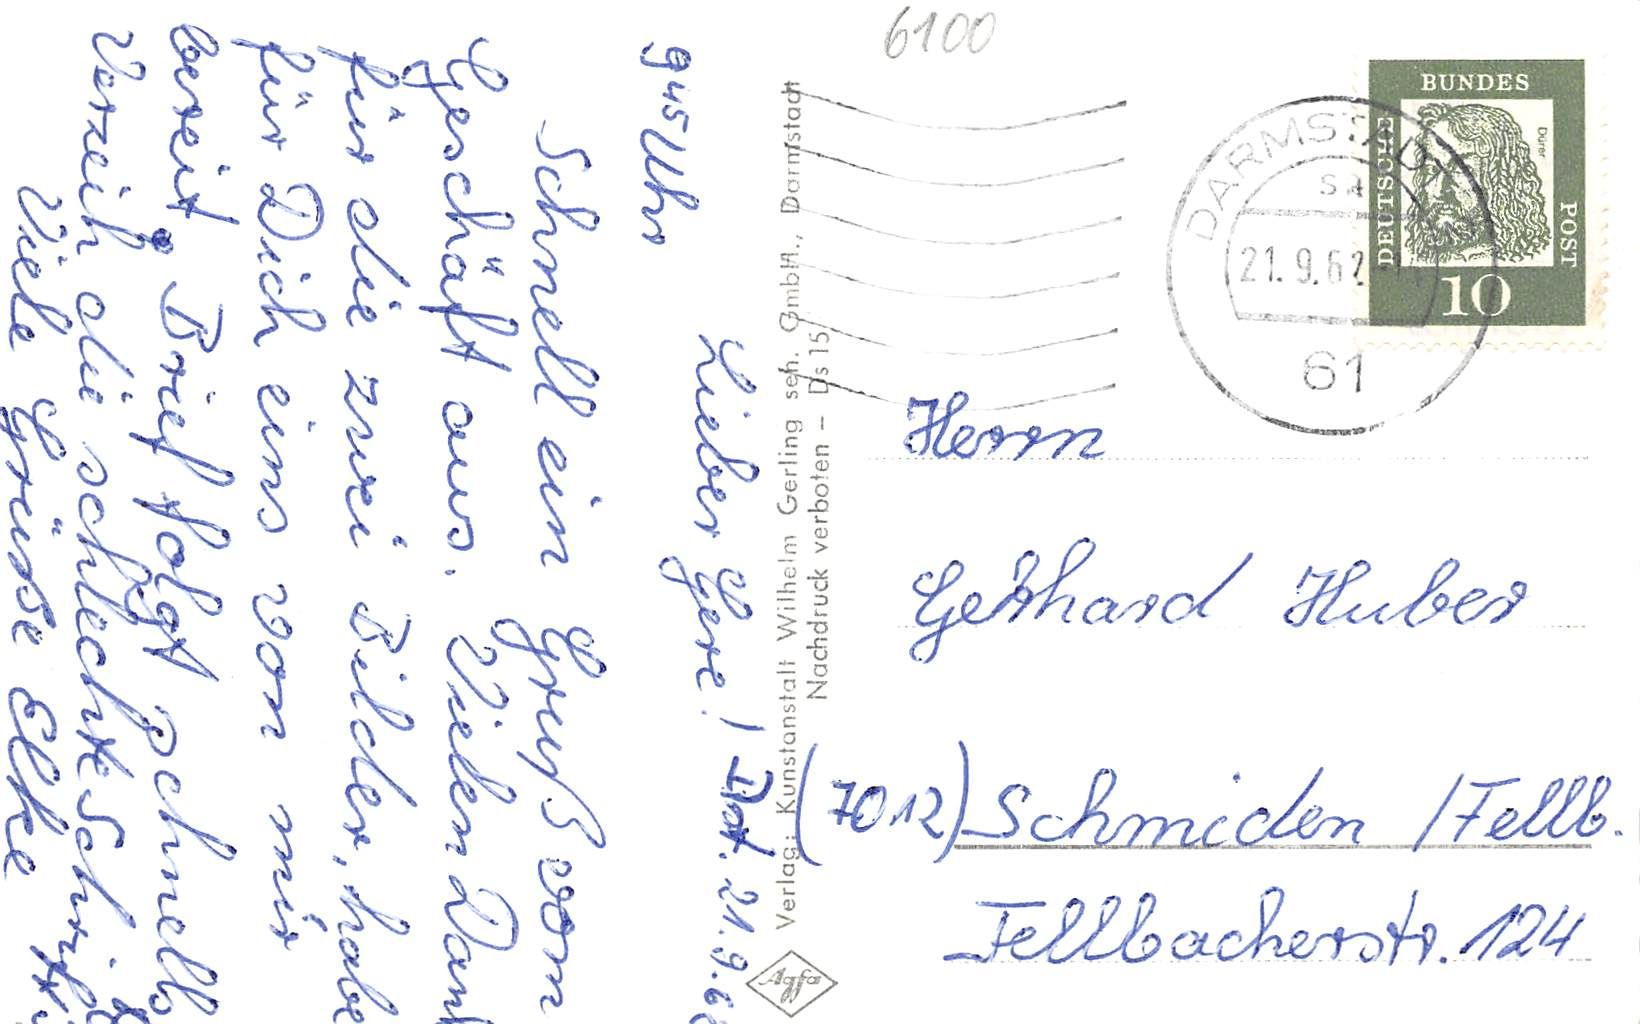 9⁴⁵ Uhr
Dat. 21.9.6
Lieber Gere!
Schnell ein Gruß vom
Geschäft aus. Vielen Dank
für die zwei Bilder, habe
für Dich eins von mir
bereit, Brief folgt schnells
Verzeih die schlechte Schrift
Viele Grüsse Elke
Verlag: Kunstanstalt Wilhelm Gerling sen. GmbH., Darmstadt
Nachdruck verboten – Ds 15
Agfa
6100
DARMSTADT
21.9.62
61
DEUTSCHE
BUNDES
POST
Dürer
10
Herrn
Gerhard Huber
(7012) Schmiden /Fellb.
Fellbacherstr. 124